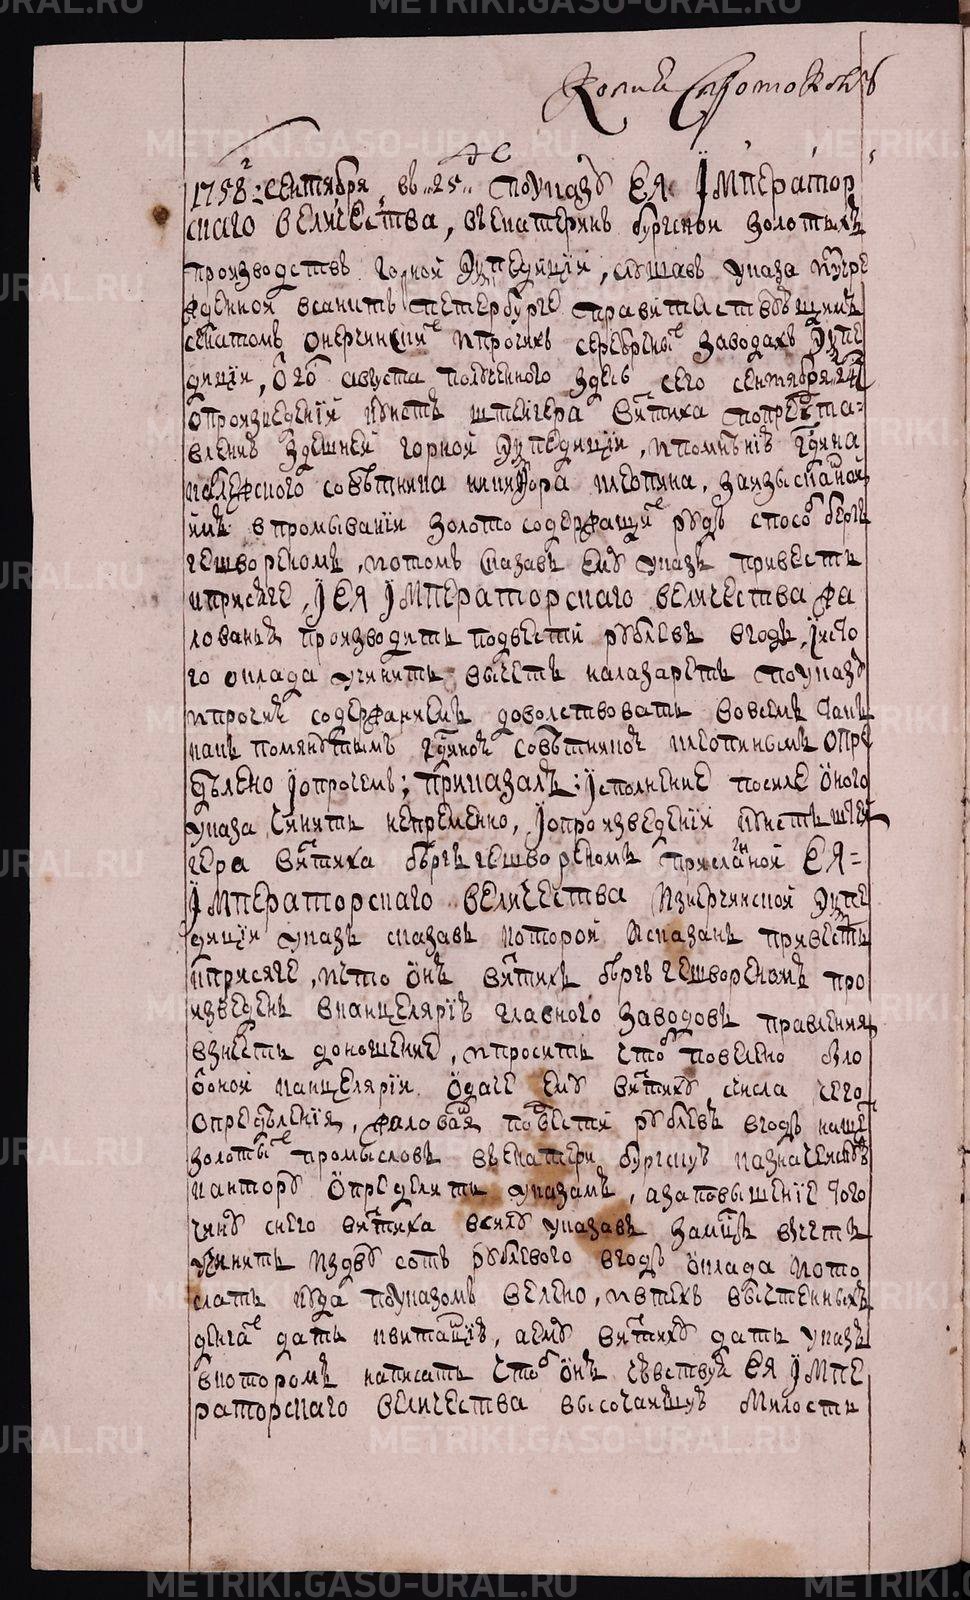 Копия с протоколу
1758 г: сентября въ 25 поуказу ЕЯ ІМператор
скаго величества, вЪекатеринъ бургской золотыхъ
производствъ горной экпедиции, слушавъ указа иучре
жденной всанктъ петербурге правителствующимъ
сенатомъ онерчинскихъ ипрочихъ серебреныхъ заводахъ экпе
диции, 020 августа полученного здесь сего сентября 24
опроизведении кунстъ штейгера
влениъ здешней горной экпедиции, ипомнѣниѣ гдина
колежского совѣтника иникора клеопина, заизысканой
имъ впромывании золото содержащихъ рудъ способ берге
гешвореномъ, ипотомъ сказавъ ему указъ привесть
кприсяге, І ЕЯ ІМператорскаго величества жа
лованья производить подвести рублевъ вгодъ, и
го оклада учинить вычетъ налазаретъ поуказу
ипрочих содержаниемъ доволствовать вовсемъ такъ
какъ помянутымъ гдиномъ совѣтникомъ клеопинымъ опре
дѣлено іопрочемъ; приказалъ: Ісполнение посиле оного
указа чинить непременно, іопроизведении кунстъ штей
гера бергъ гешвореномъ присланой ЕЯ=
ІМператорскаго величества изнерчинской экпе
диции указъ сказавъ которой исказанъ привесть
кприсяге, ичто онъ бергъ гешвореномъ про
изведенъ вканцелярию главного заводовъ правления
взнесть доношение, ипросить чтоб повелено было
отоной канцелярии одаче ему числа сего
определения, жалованя подвести рублевъ вгодъ
золотыхъ промысловъ вЪекатерин бургскую казначейскую
кантору определить указомъ, азаповышение того
чину снего всилу указавъ замесяцъ вычетъ
учинить издву сотъ рублевого вгодъ оклада ито
слать куда поуказомъ велено, ивтехъ вычтенныхъ
денгахъ дать квитанцию, аему дать указъ
вкоторомъ написать чтоб онъ чювствуя ЕЯ ІМпе
раторскаго величества высочайшую милость
METRIKI.GASO-URAL.RU